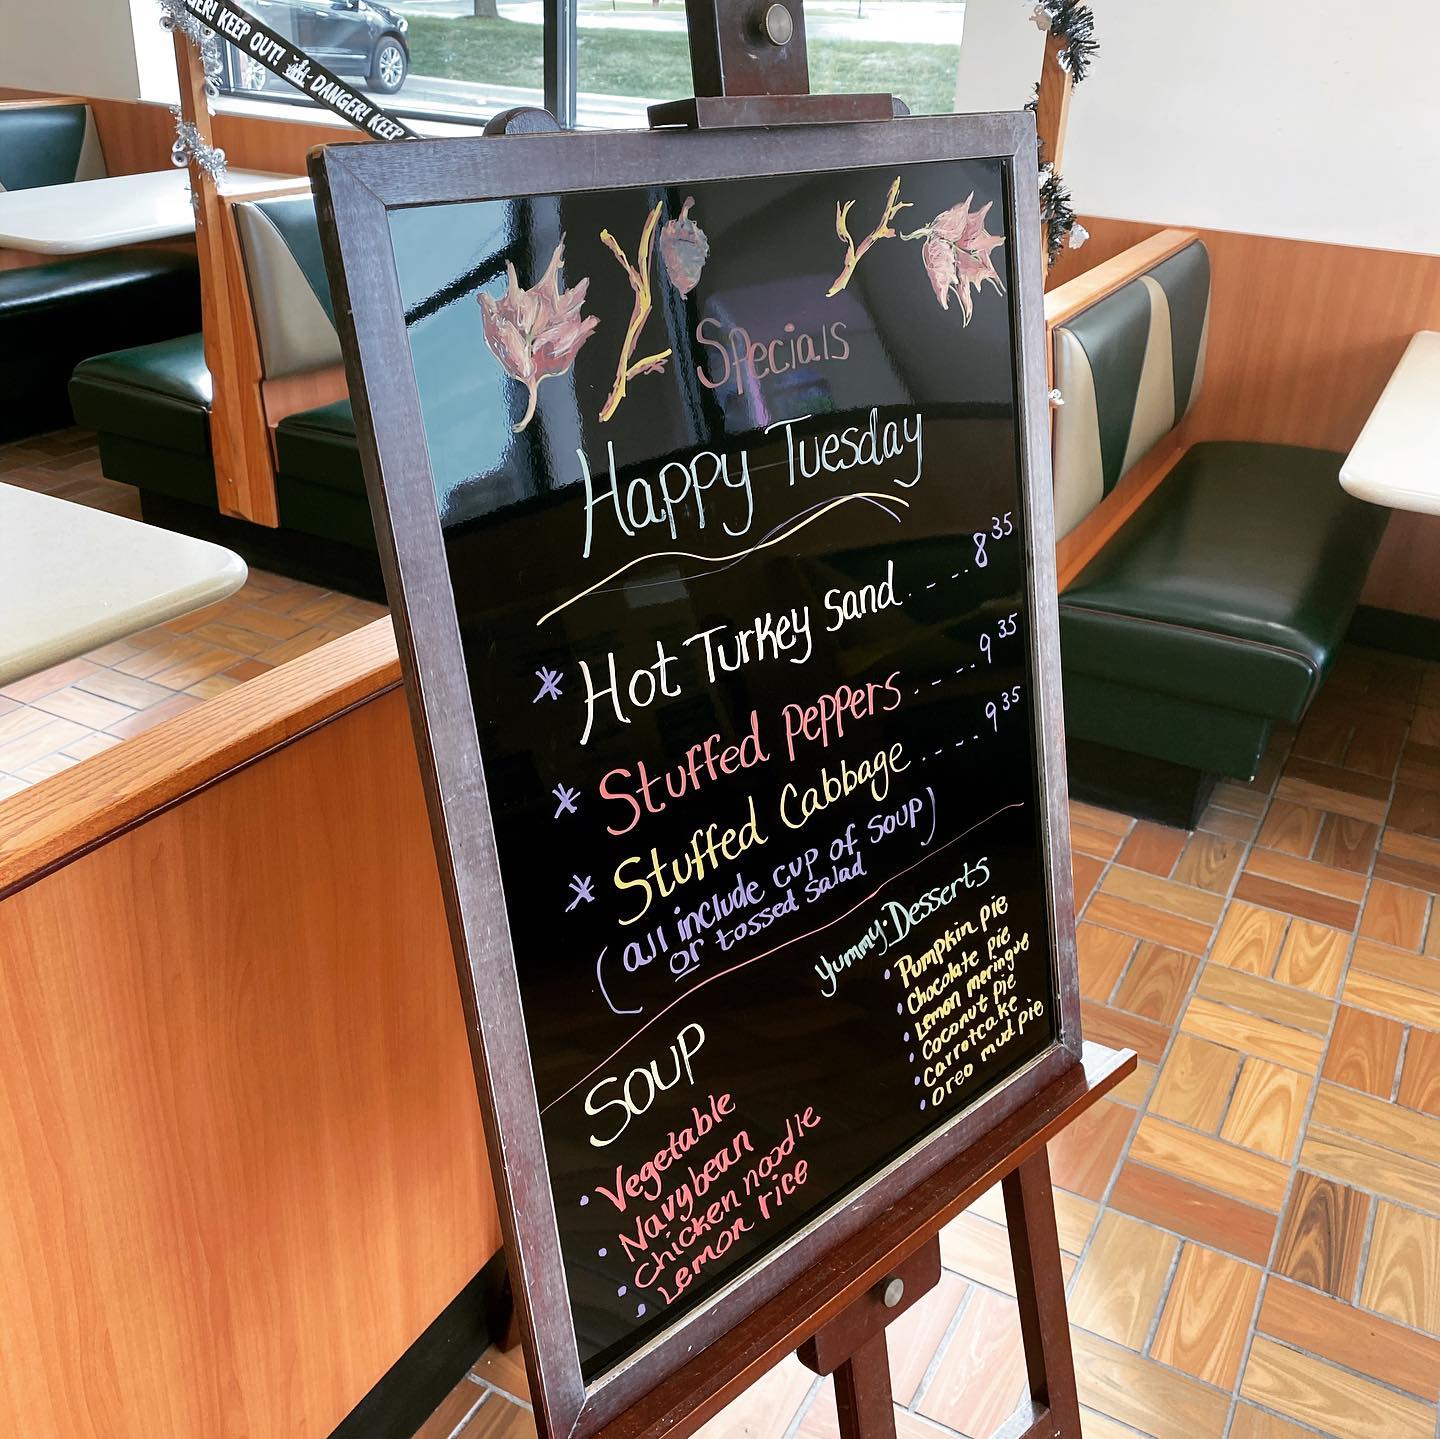 GER! KEEP OUT! DANGER! KEEP
Specials
Happy Tuesday
* Hot Turkey Sand. - - .. 8 35
* Stuffed Peppers . - - .. 9 35
* Stuffed Cabbage . . - - . 9 35
(all include cup of soup)
or tossed salad
Yummy·Desserts
• Pumpkin pie
• Chocolate pie
• Lemon meringue
• Coconut pie
• Carrotcake
• Oreo mud pie
Soup
• Vegetable
• Navybean
• Chicken noodle
• Lemon rice